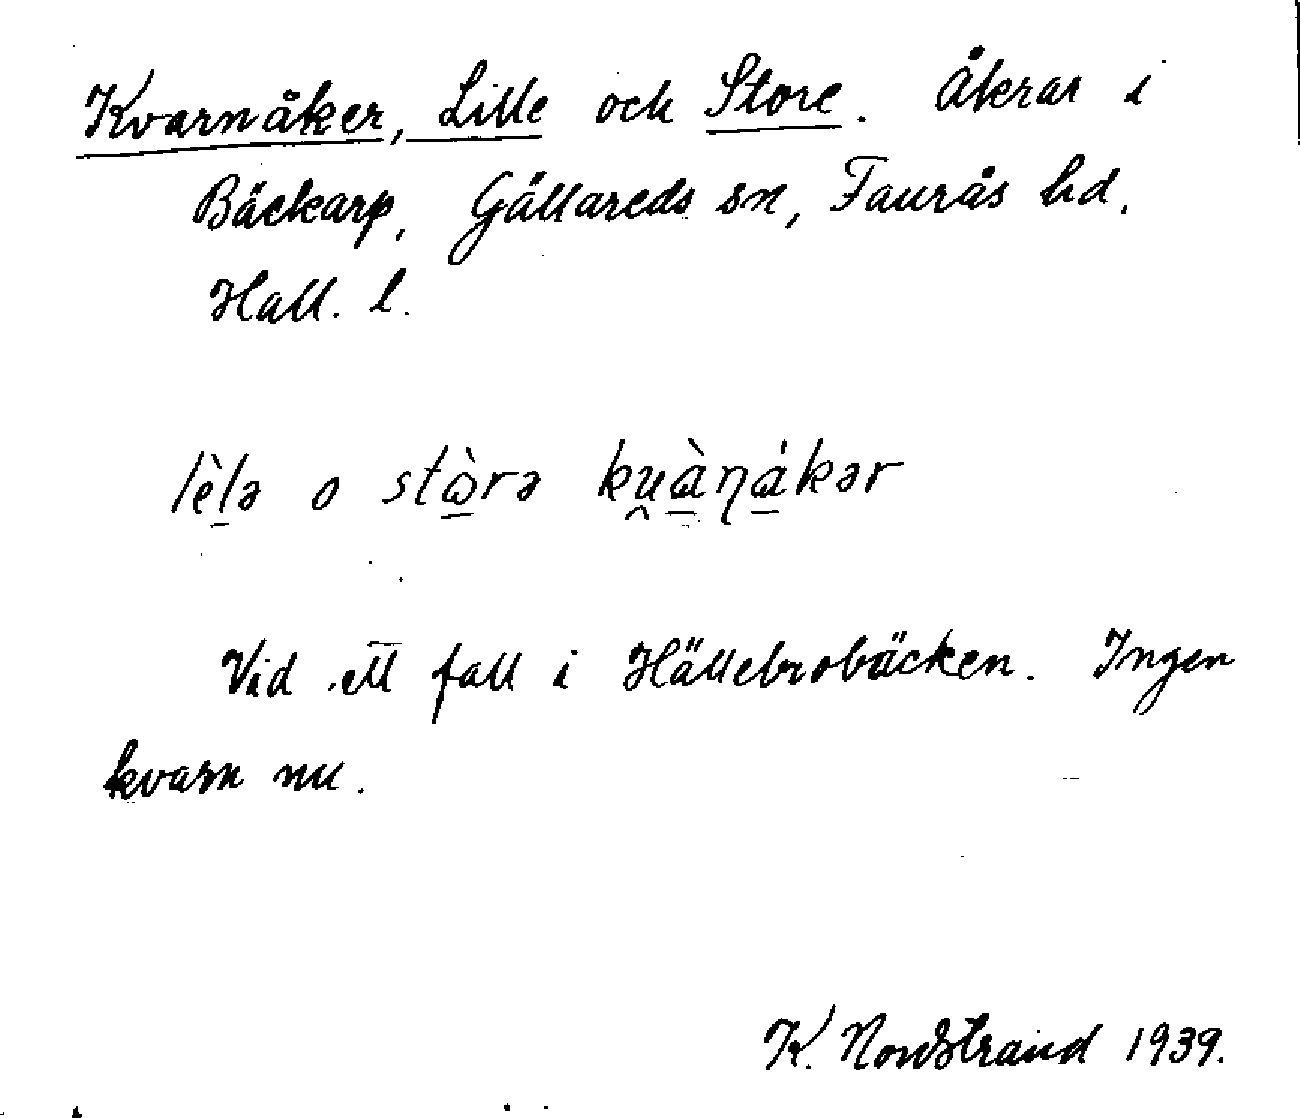 Kvarnåker, Lille och Store. Åkrar i
Bäckarp, Gällareds sn, Faurås hd.
Hall. l.
lèl̠ə o stὼ̠rə ku̯à̠ɳá̠kər
Vid ett fall i Hällebrobäcken. Ingen
kvarn nu.
K. Nordstrand 1939.